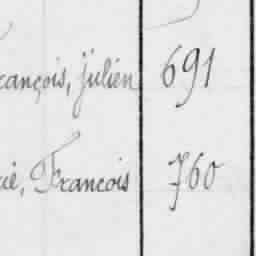 rançois, Julien 691
ié, Francois 760